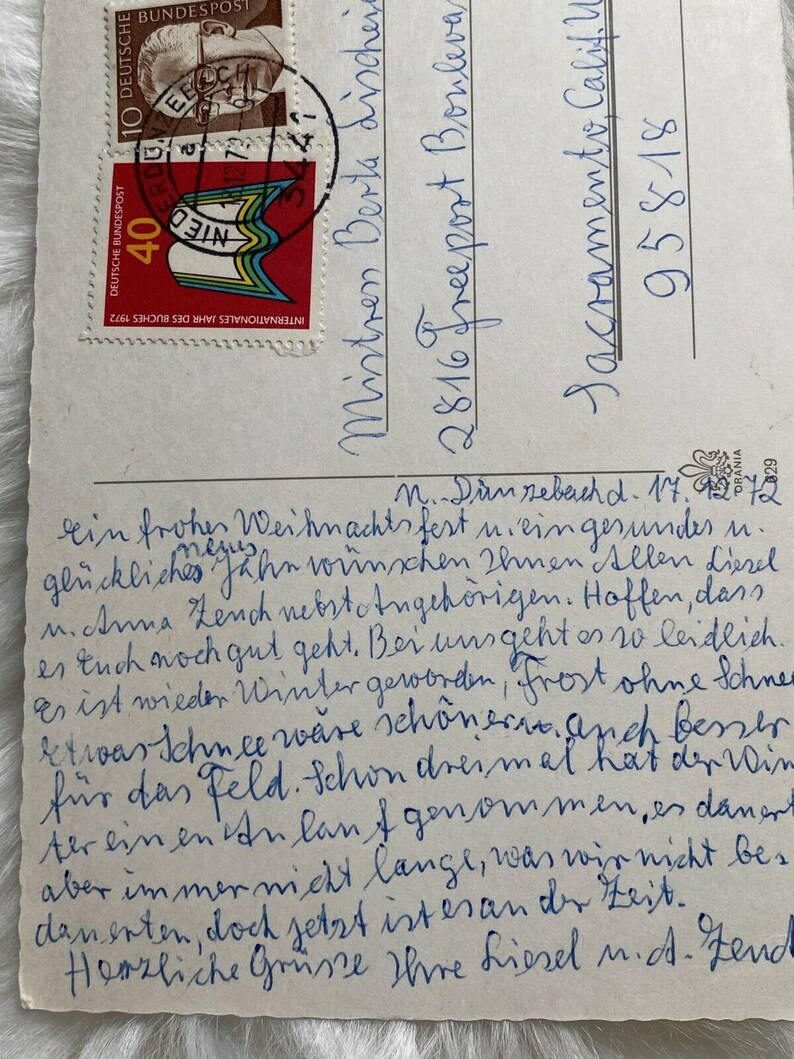 10 DEUTSCHE BUNDESPOST
NIEDERDÜNZEBACH
a
3441
DEUTSCHE BUNDESPOST
40
INTERNATIONALES JAHR DES BUCHES 1972
Mistress Berta
2816 Freeport Bouleva
Sacramento, Calif. U
95818
ORANIA
629
N.-Dünzebach d. 17. 12. 72
Ein frohes Weihnachtsfest u. ein gesundes u.
glückliches neues Jahr wünschen Ihnen Allen Liesel
u. Anna Zench nebst Angehörigen. Hoffen, dass
es Euch noch gut geht. Bei uns geht es so leidlich.
Es ist wieder Winter geworden, Frost ohne Schnee
Etwas Schnee wäre schöner u. auch besser
für das Feld. Schon dreimal hat der Win
ter einen Anlauf genommen, es dauert
aber immer nicht lange, was wir nicht be-
dauerten, doch jetzt ist es an der Zeit.
Herzliche Grüsse Ihre Liesel u. A. Zench